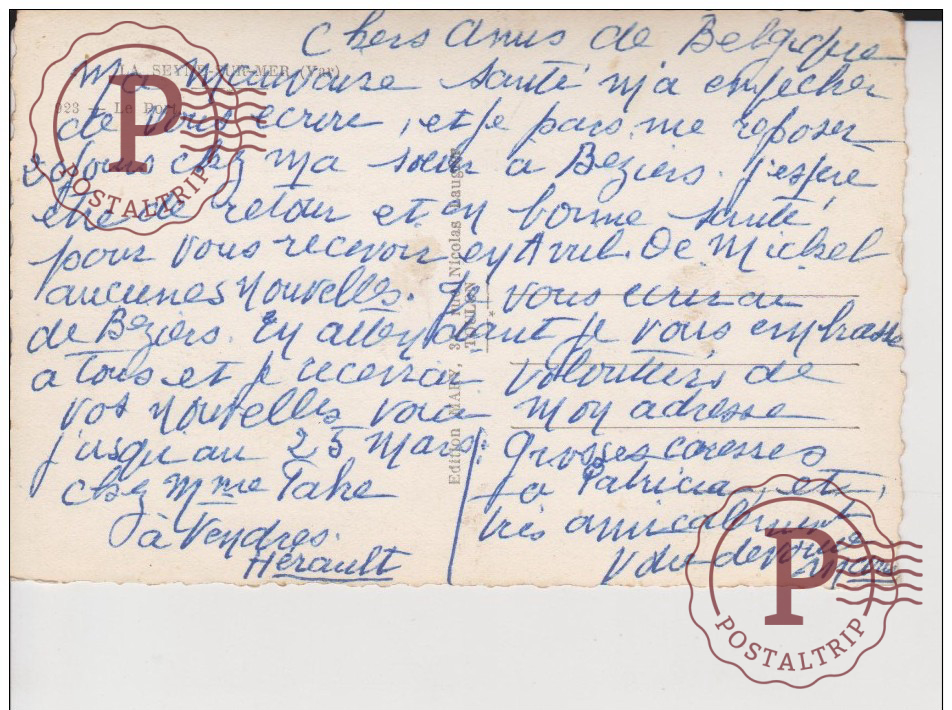 Chers Amis de Belgique
Ma Mauvaise Santé m'a empecher
de vous ecrire, et je pars me reposer
chez ma sœur à Beziers. J'espere
etre de retour et en bonne santé
pour vous recevoir en Avril. De Mickel
aucunes Nouvelles. Je vous ecrirai
de Beziers. En attendant je vous embrasse
a Tous et je recevrai volontiers de
vos Nouvelles voici mon adresse
jusqu'au 25 Mars:
chez Mme Take
à Vendres.
Hérault
Grosses caresses
a Patricia, et
très amicalement
LA SEYNE-SUR-MER (Var)
923 - Le Port
Edition MARY, 3, Rue Nicolas Laugier
TOULON
P
POSTALTRIP
P
POSTALTRIP